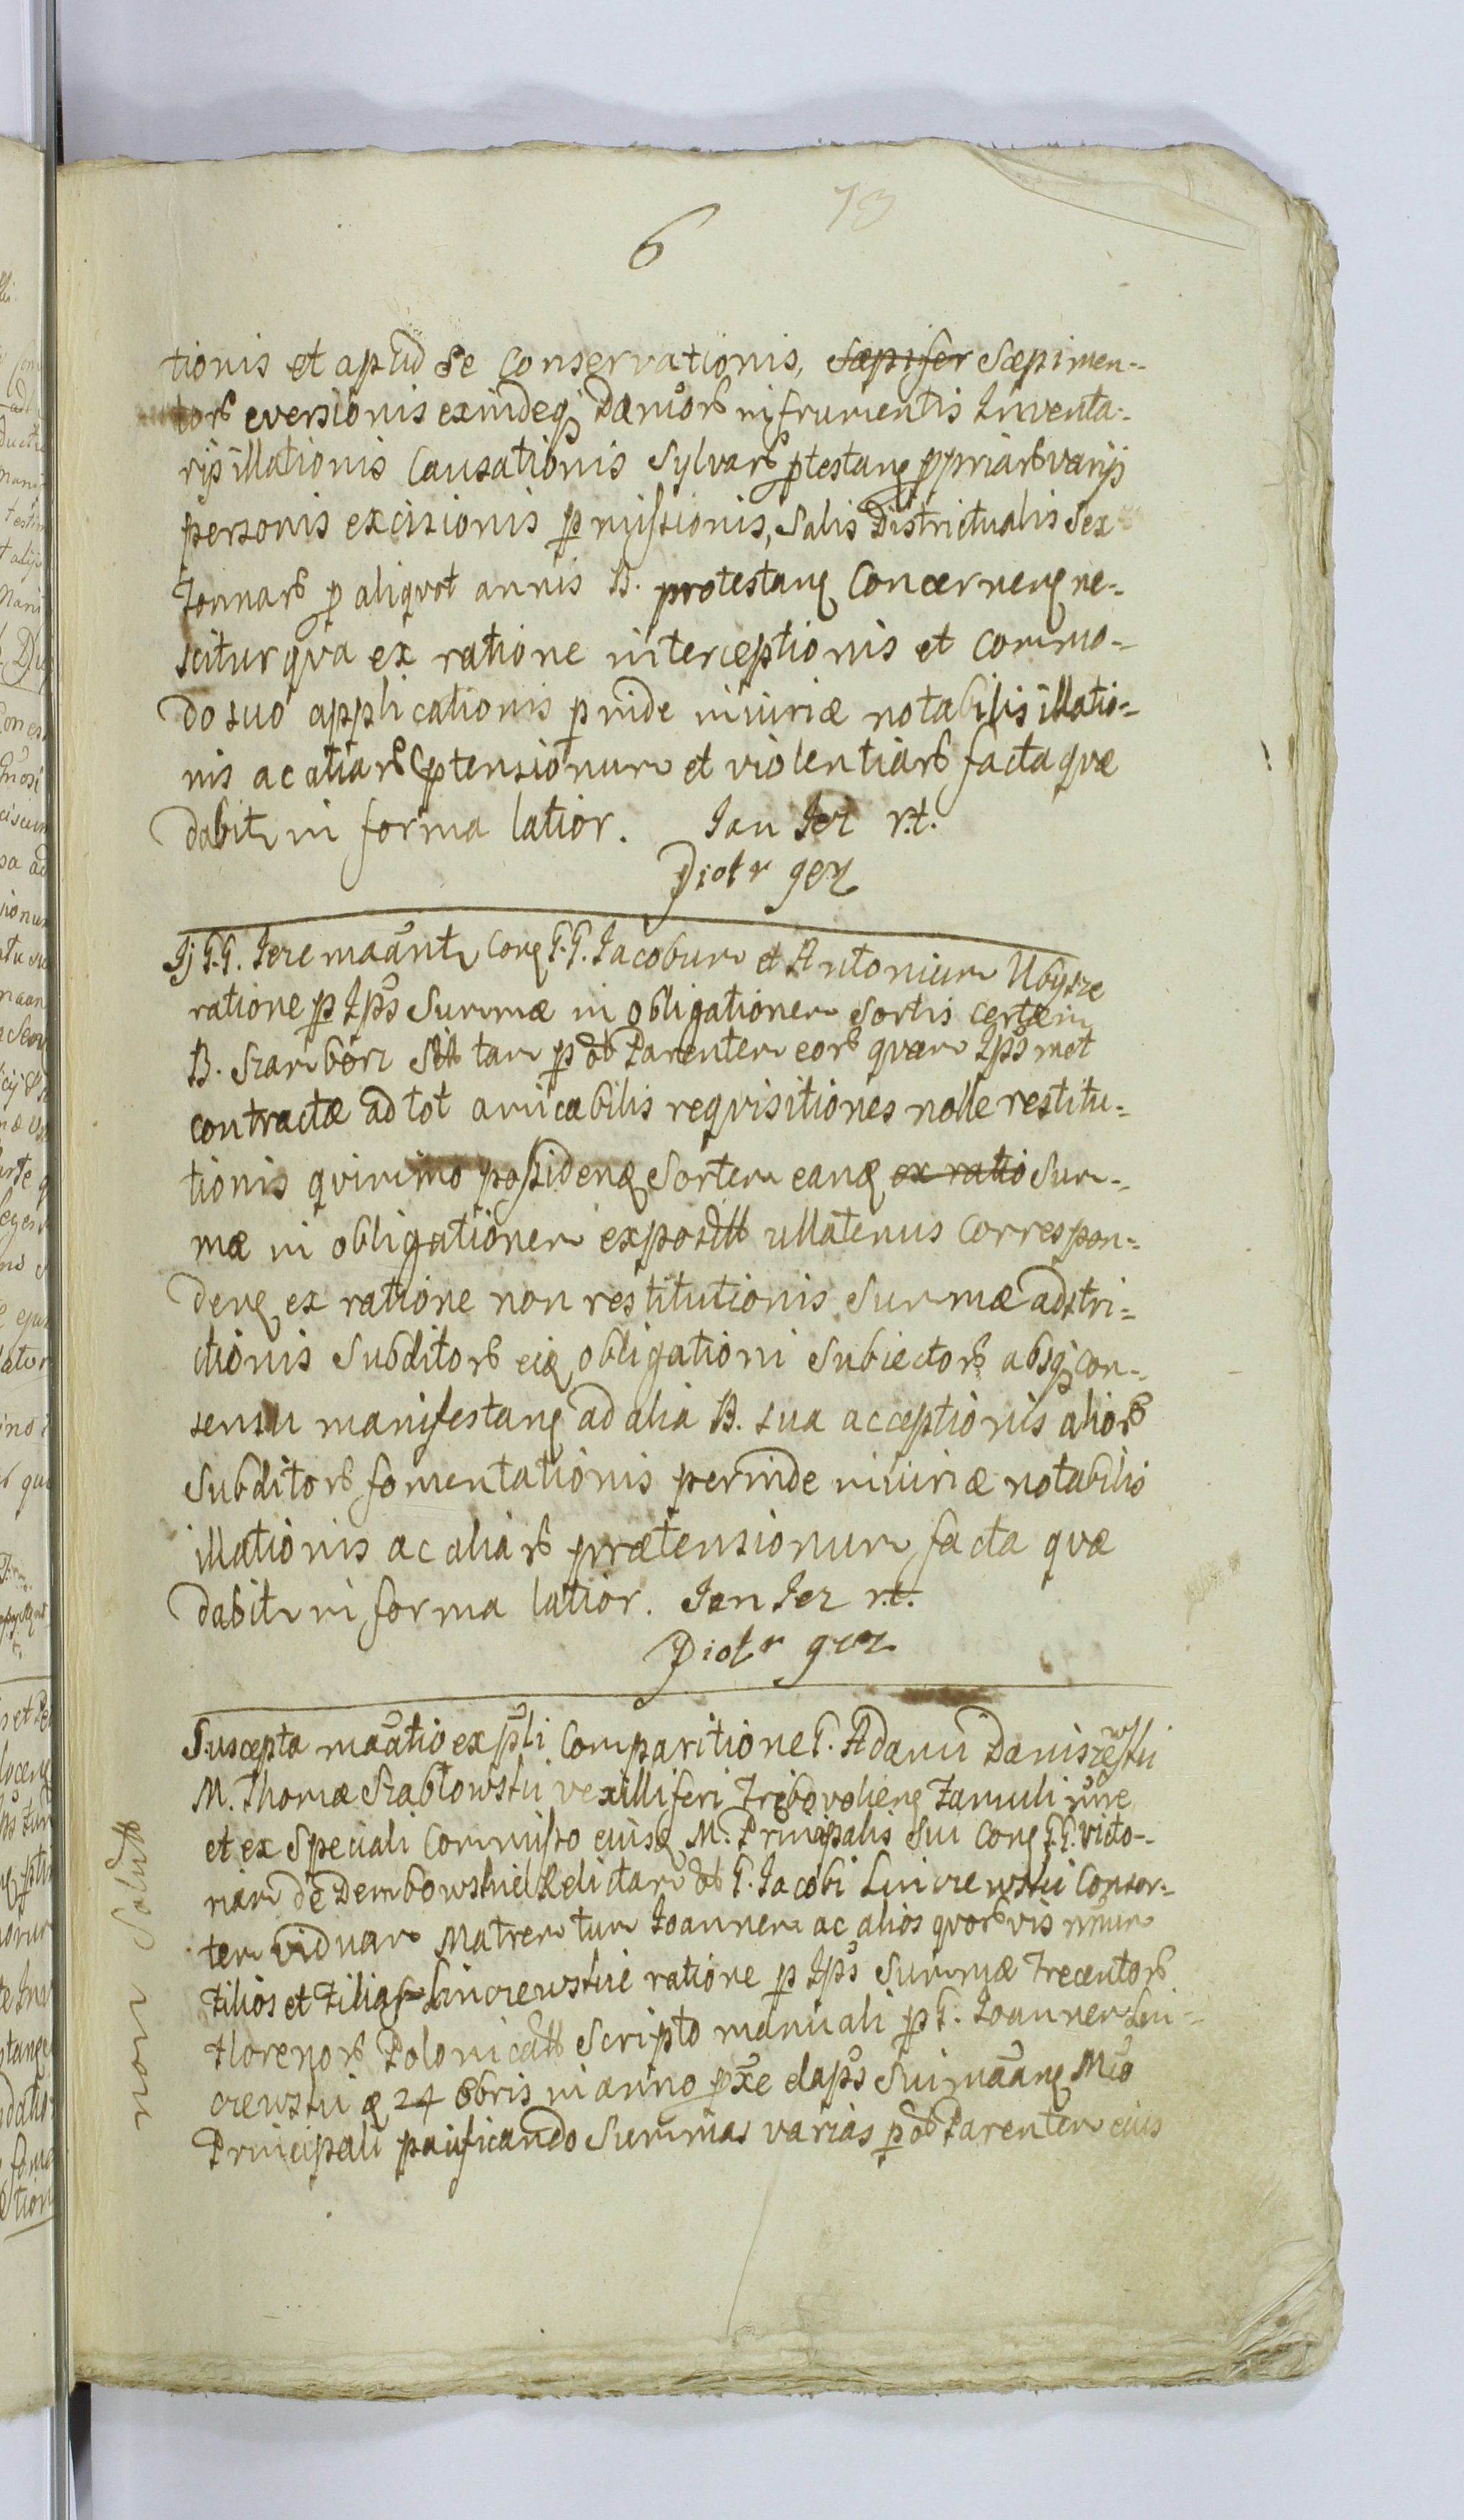 6
13
tionis et apud se Conservationis, Sæpifer Sæpimen-
torꝝ eversionis exindeq; Damorꝝ in frumentis Inventa-
rijs illationis Causationis Sylvarꝝ ꝓtestanꝭ ꝓpriarꝝ varijs
personis excisionis ꝑmissionis, Salis Districtualis Sex
Tonnarꝝ ꝑ aliqvot annis B. protestanꝭ Concernenꝭ ne-
scitur qva ex ratione interceptionis et Commo-
do suo applicationis ꝑinde iniuriæ notabilis illatio-
nis ac aliarꝝ ptensionum et violentiarꝝ facta qvæ
dabitr in forma latior. Jan Jez r.t.
Piotr gez
Ij G.G. Jeze maãntr Conꝭ G.G. Jacobum et Antonium Ubysze
ratione ꝑ Ipõs Summæ in obligationem Sortis certæ in
B. Szarborz Sitt tam ꝑ ol Parentem eorꝝ qvam Ipõs met
contractæ ad tot amicabilis reqvisitiones nolle restitu-
tionis qvinimo possidenꝭ Sortem eanꝭ ex ratio Sum-
mæ in obligationem exposittt ullatenus Correspon-
denꝭ ex ratione non restitutionis Summæ adstri-
ctionis Subditorꝝ eiꝭ obligationi Subiectorꝝ absq; con-
sensu manifestanꝭ ad alia B. sua acceptionis aliorꝝ
Subditorꝝ fomentationis perinde iniuriæ notabilis
illationis ac aliarꝝ prætensionum facta qvæ
dabitr in forma latior. Jan Jez r.t.
Piotr gez
Suscepta maãtio ex pli Comparitione G. Adami Daniszewski
M. Thomæ Szabłowski vexilliferi Trębovolienꝭ Famuli
et ex Speciali Commisso eiusꝭ M. Principalis Sui Conꝭ G.G. Victo-
riam de Dembowskie Relictam ol G. Jacobi Linczewski Consor-
tem viduam Matrem tum Joannem ac alios qvorꝝvis
Filios et Filias Linczewskie ratione ꝑ Ipõs Summæ Trecentorꝝ
Florenorꝝ Polonicatt Scripto manuali ꝑ G. Joannem Lin-
czewski 24 8bris in anno elapõ Sui maãnꝭ
Principali pacificando Summas varias ꝑ ol Parentem eius
non Soluitt